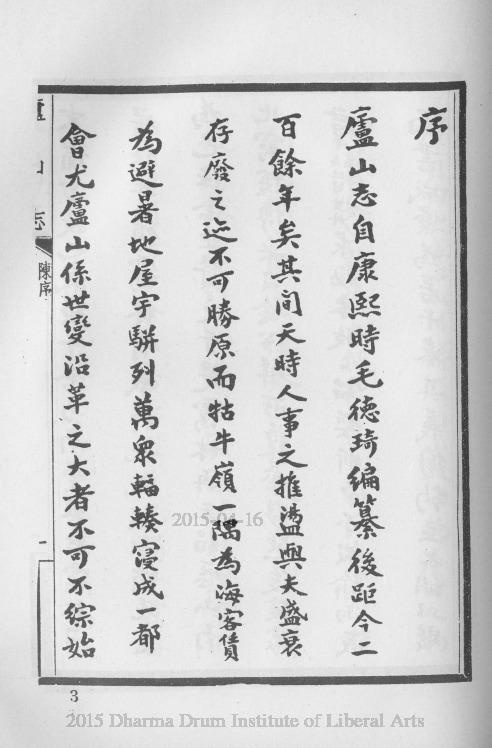 序
廬山志自康熙時毛德琦編纂後距今二
百餘年矣其間天時人事之推盪與夫盛衰
存廢之迹不可勝原而牯牛嶺一隅為海客賃
為避暑地屋宇駢列萬衆輻輳寖成一都
會尤廬山係世變沿革之大者不可不綜始
廬山志
陳序
一
3
2015-04-16
2015 Dharma Drum Institute of Liberal Arts